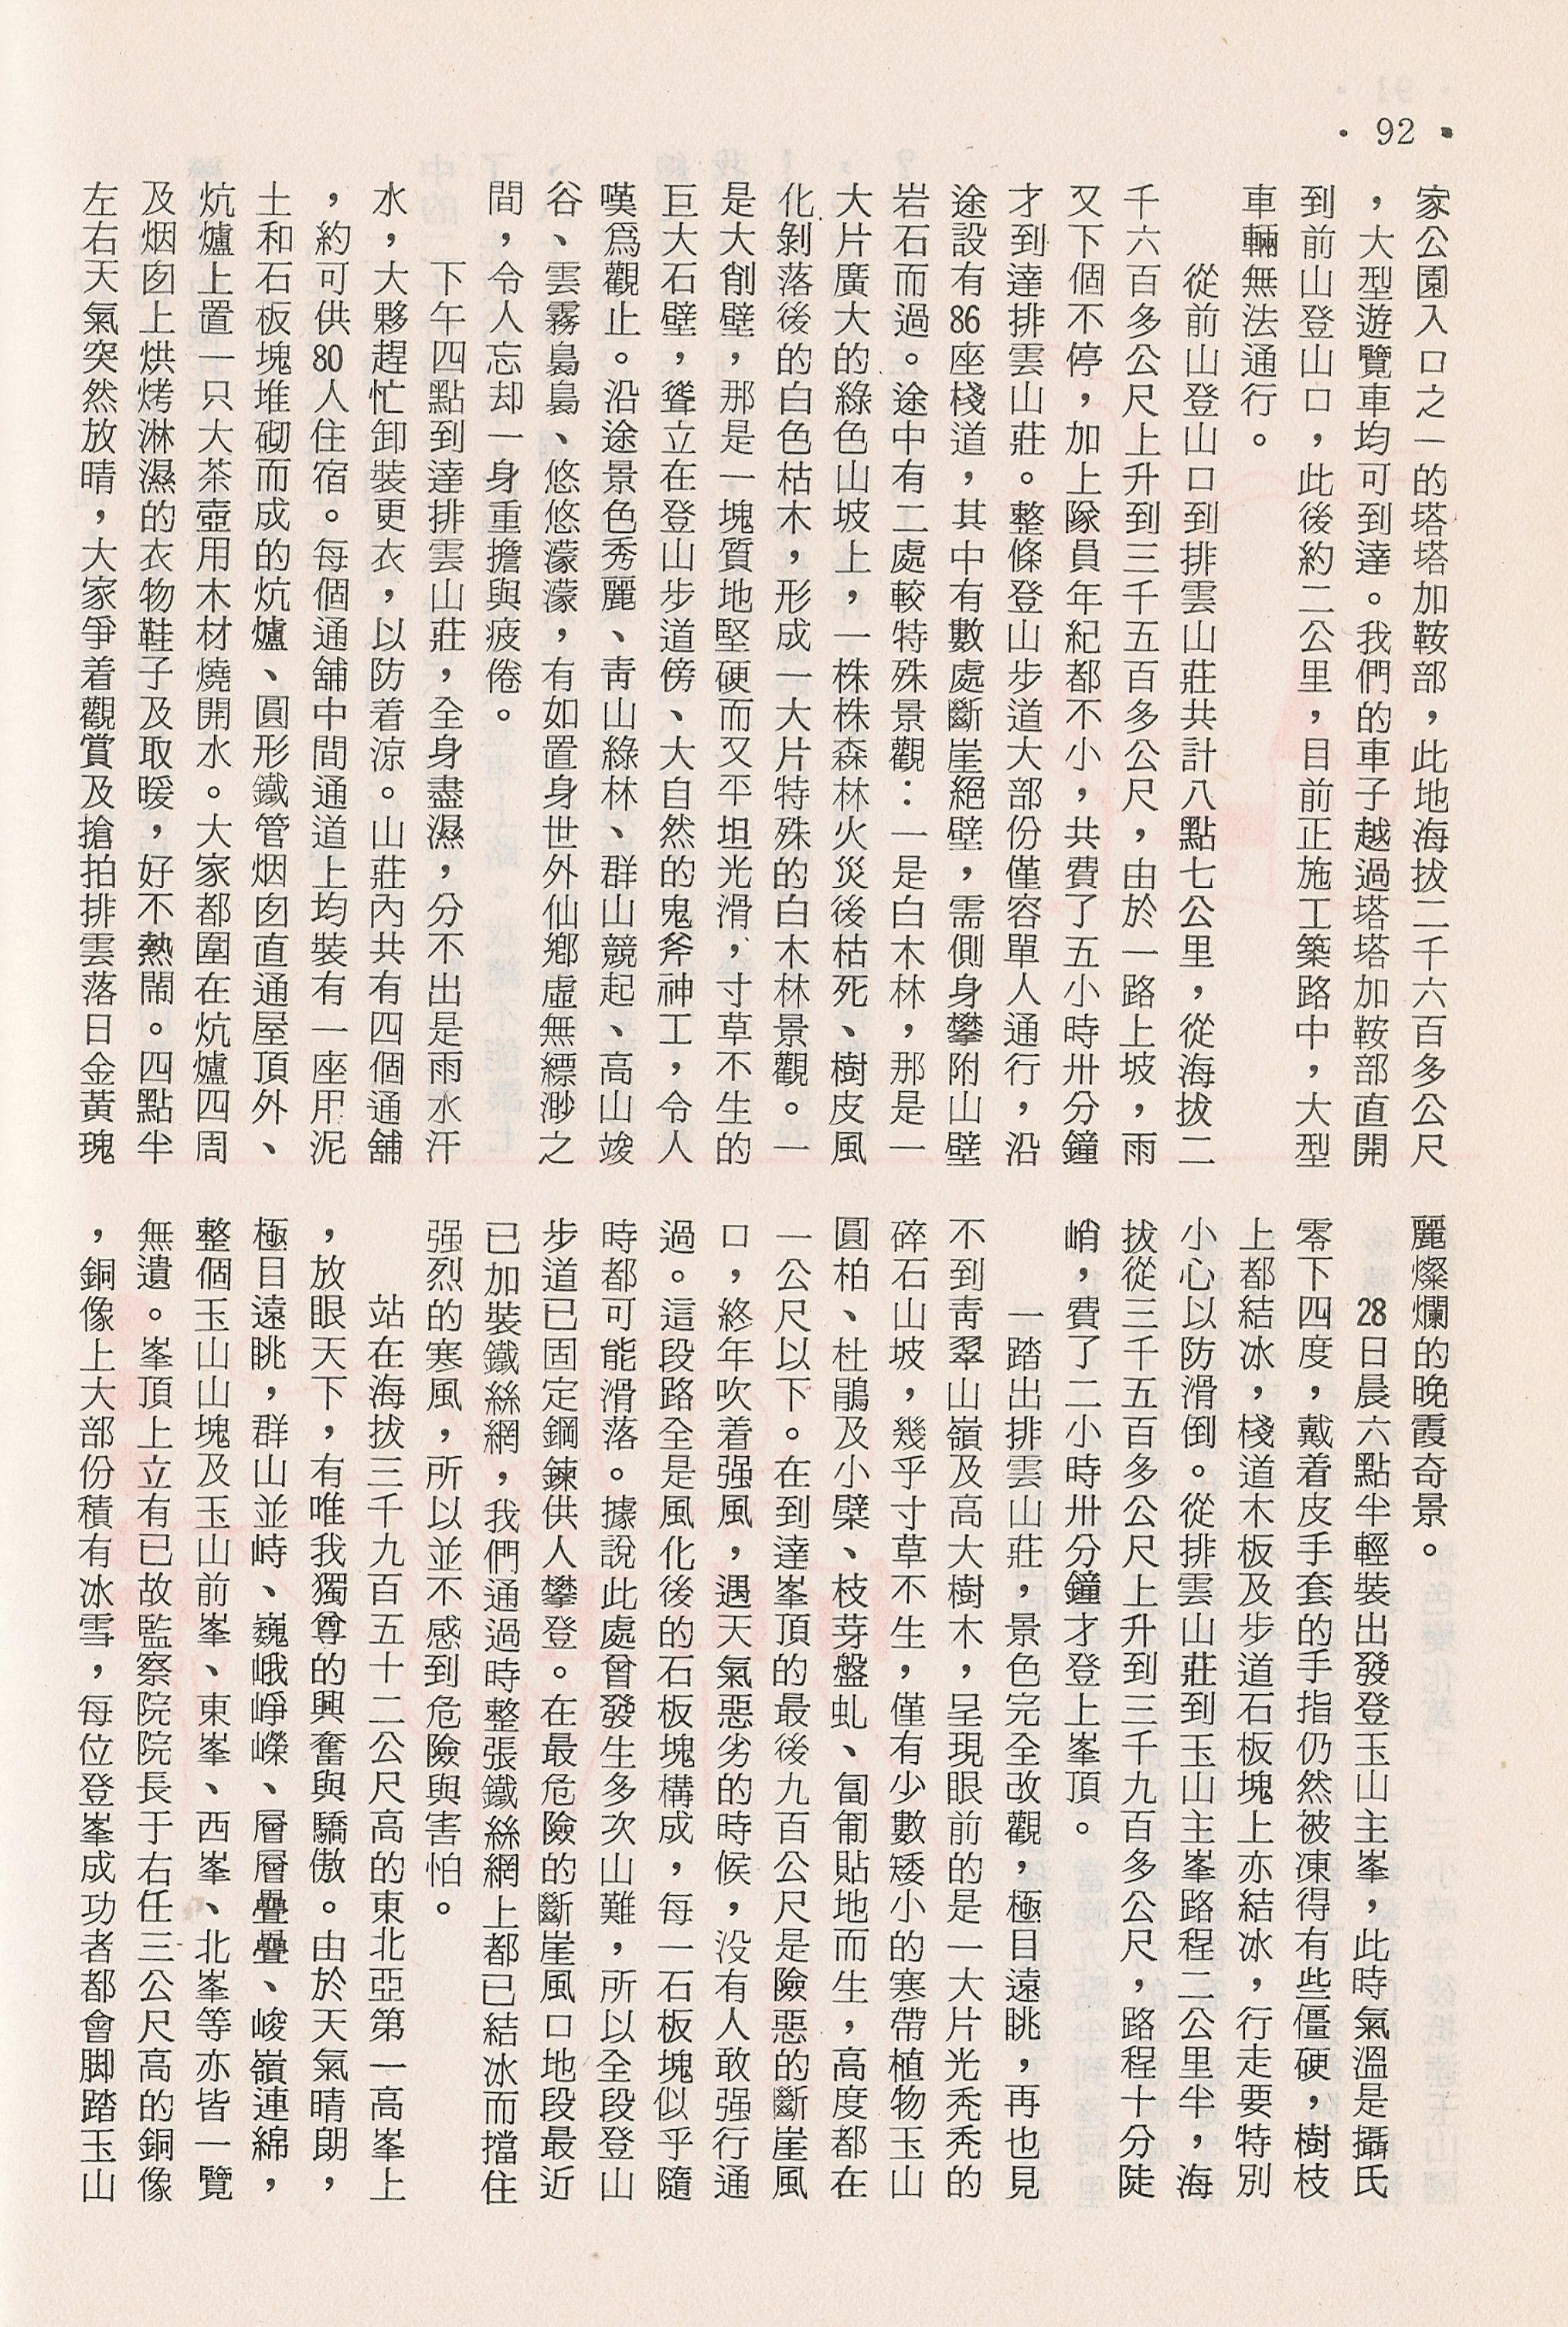 • 92 •
家公園入口之一的塔塔加鞍部，此地海拔二千六百多公尺
，大型遊覽車均可到達。我們的車子越過塔塔加鞍部直開
到前山登山口，此後約二公里，目前正施工築路中，大型
車輛無法通行。
從前山登山口到排雲山莊共計八點七公里，從海拔二
千六百多公尺上升到三千五百多公尺，由於一路上坡，雨
又下個不停，加上隊員年紀都不小，共費了五小時卅分鐘
才到達排雲山莊。整條登山步道大部份僅容單人通行，沿
途設有86座棧道，其中有數處斷崖絕壁，需側身攀附山壁
岩石而過。途中有二處較特殊景觀：一是白木林，那是一
大片廣大的綠色山坡上，一株株森林火災後枯死、樹皮風
化剝落後的白色枯木，形成一大片特殊的白木林景觀。一
是大削壁，那是一塊質地堅硬而又平坦光滑，寸草不生的
巨大石壁，聳立在登山步道傍、大自然的鬼斧神工，令人
嘆爲觀止。沿途景色秀麗、靑山綠林、群山競起、高山竣
谷、雲霧裊裊、悠悠濛濛，有如置身世外仙鄉虛無縹渺之
間，令人忘却一身重擔與疲倦。
下午四點到達排雲山莊，全身盡濕，分不出是雨水汗
水，大夥趕忙卸裝更衣，以防着涼。山莊內共有四個通舖
，約可供80人住宿。每個通舖中間通道上均裝有一座用泥
土和石板塊堆砌而成的炕爐、圓形鐵管烟囱直通屋頂外、
炕爐上置一只大茶壺用木材燒開水。大家都圍在炕爐四周
及烟囱上烘烤淋濕的衣物鞋子及取暖，好不熱鬧。四點半
左右天氣突然放晴，大家爭着觀賞及搶拍排雲落日金黃瑰
麗燦爛的晚霞奇景。
28日晨六點半輕裝出發登玉山主峯，此時氣溫是攝氏
零下四度，戴着皮手套的手指仍然被凍得有些僵硬，樹枝
上都結冰，棧道木板及步道石板塊上亦結冰，行走要特別
小心以防滑倒。從排雲山莊到玉山主峯路程二公里半，海
拔從三千五百多公尺上升到三千九百多公尺，路程十分陡
峭，費了二小時卅分鐘才登上峯頂。
一踏出排雲山莊，景色完全改觀，極目遠眺，再也見
不到靑翠山嶺及高大樹木，呈現眼前的是一大片光禿禿的
碎石山坡，幾乎寸草不生，僅有少數矮小的寒帶植物玉山
圓柏、杜鵑及小檗、枝芽盤虬、匐匍貼地而生，高度都在
一公尺以下。在到達峯頂的最後九百公尺是險惡的斷崖風
口，終年吹着强風，遇天氣惡劣的時候，没有人敢强行通
過。這段路全是風化後的石板塊構成，每一石板塊似乎隨
時都可能滑落。據說此處曾發生多次山難，所以全段登山
步道已固定鋼鍊供人攀登。在最危險的斷崖風口地段最近
已加裝鐵絲網，我們通過時整張鐵絲網上都已結冰而擋住
强烈的寒風，所以並不感到危險與害怕。
站在海拔三千九百五十二公尺高的東北亞第一高峯上
，放眼天下，有唯我獨尊的興奮與驕傲。由於天氣晴朗，
極目遠眺，群山並峙、巍峨崢嶸、層層疊疊、峻嶺連綿，
整個玉山山塊及玉山前峯、東峯、西峯、北峯等亦皆一覽
無遺。峯頂上立有已故監察院院長于右任三公尺高的銅像
，銅像上大部份積有冰雪，每位登峯成功者都會脚踏玉山